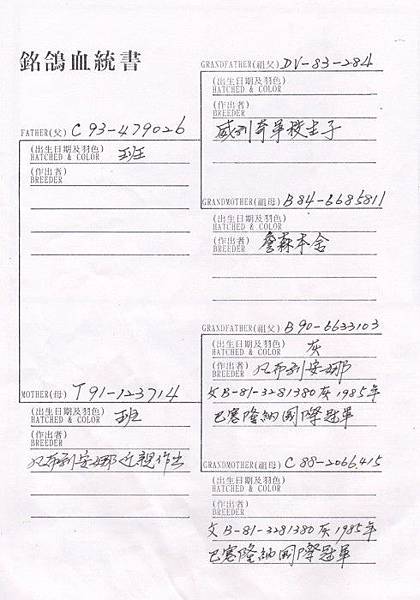 銘鴿血統書
GRANDFATHER(祖父) DV-83-284
(出生日期及羽色)
HATCHED & COLOR
(作出者)
BREEDER
FATHER(父) C 93-479026
(出生日期及羽色) 斑
HATCHED & COLOR
(作出者)
BREEDER
GRANDMOTHER(祖母) B84-6685811
(出生日期及羽色)
HATCHED & COLOR
(作出者) 詹森本舍
BREEDER
GRANDFATHER(祖父) B90-6633103
(出生日期及羽色) 灰
HATCHED & COLOR
(作出者) 凡布利安娜
BREEDER
父B-81-3281380灰1985年
巴塞隆納國際冠軍
MOTHER(母) T91-123714
(出生日期及羽色) 斑
HATCHED & COLOR
(作出者)
BREEDER
凡布利安娜近親作出
GRANDMOTHER(祖母) C 88-2066415
(出生日期及羽色)
HATCHED & COLOR
(作出者)
BREEDER
父B-81-3281380灰1985年
巴塞隆納國際冠軍